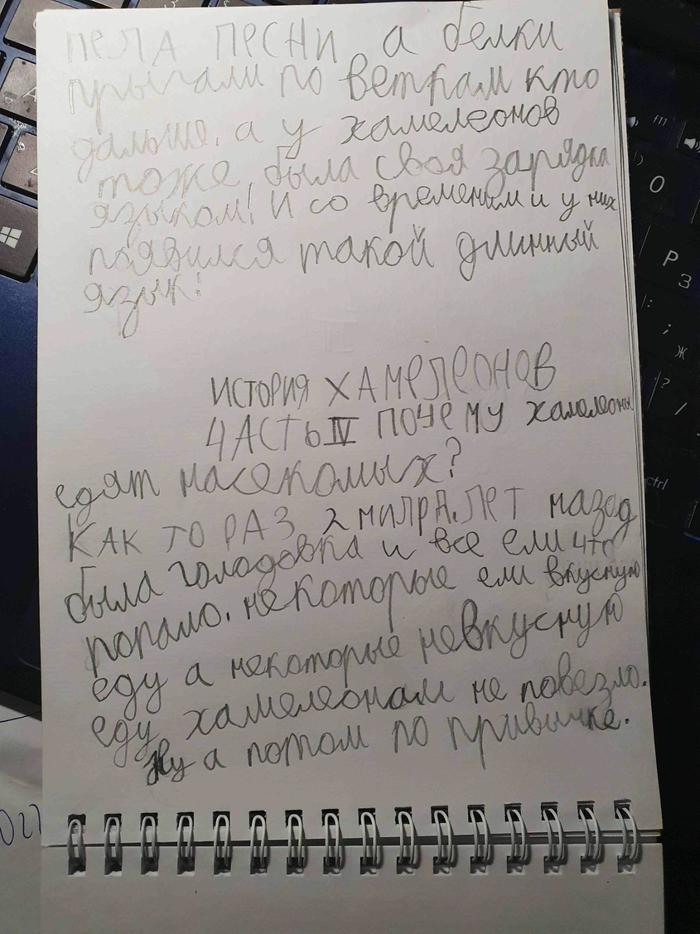 пела песни а белки
прыгали по веткам кто
дальше. а у хамелеонов
тоже была своя зарядка
языком! И со временим и у них
появился такой длинный
язык!
ИСТОРИЯ ХАМЕЛЕОНОВ
ЧАСТЬ IV ПОЧЕМУ хамелеоны
едят насекомых?
КАК ТО РАЗ 2 МИЛРД. ЛЕТ назад
была голодовка и все ели что
попало. некоторые ели вкусную
еду а некоторые невкусную
еду хамелеонам не повезло.
Ну а потом по привычке.